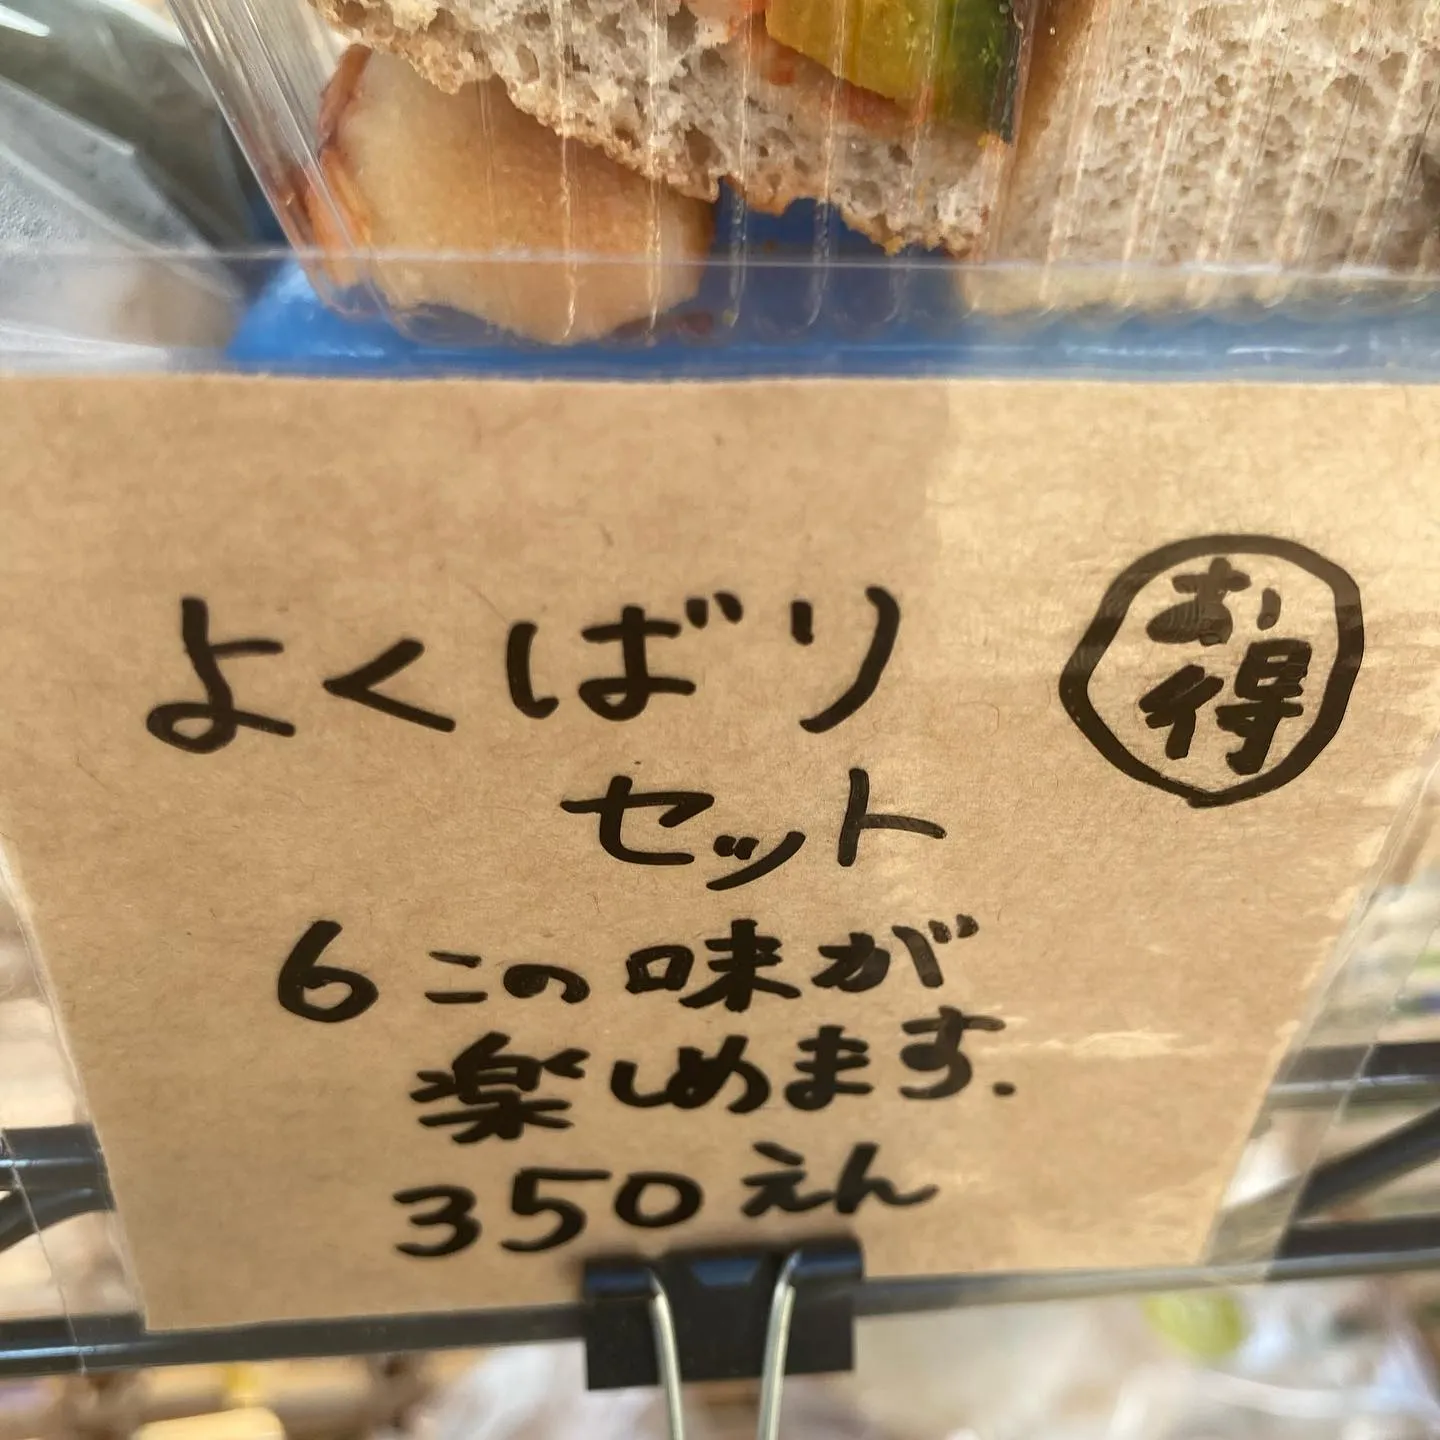 よくばり
セット
お
得
6この味が
楽しめます.
350えん